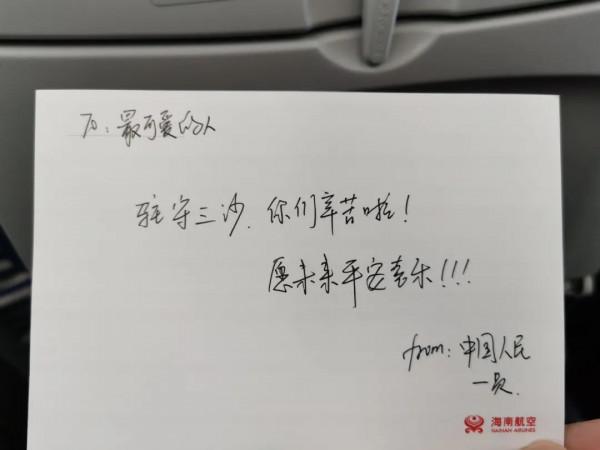 To: 最可爱的人
驻守三沙, 你们辛苦啦!
愿未来平安喜乐!!!
from: 中国人民
一员.
海南航空
HAINAN AIRLINES